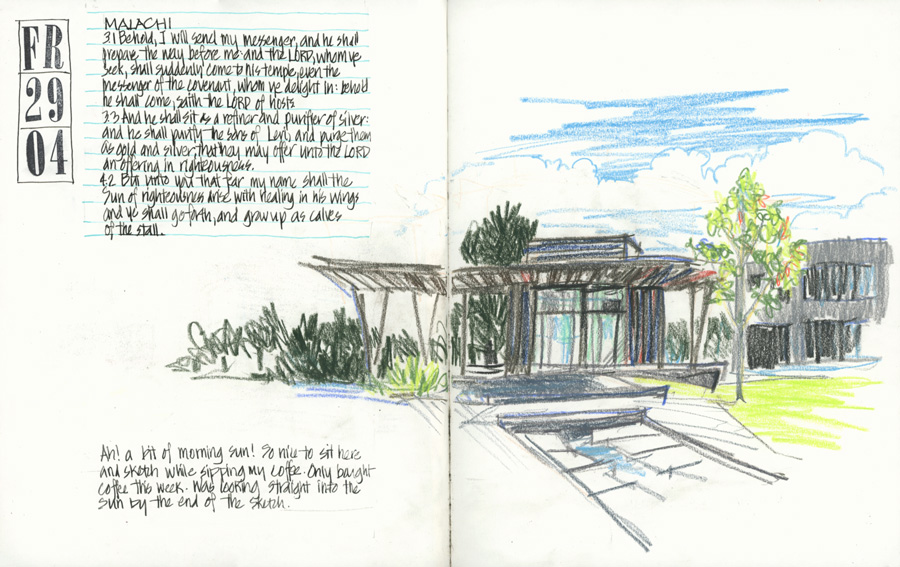 FR
29
04
MALACHI
3.1 Behold, I will send my messenger, and he shall
prepare the way before me: and the LORD, whom ye
seek, shall suddenly come to his temple, even the
messenger of the covenant, whom ye delight in: behold
he shall come, saith the LORD of hosts
3.3 And he shall sit as a refiner and purifier of silver:
and he shall purify the sons of Levi, and purge them
as gold and silver, that they may offer unto the LORD
an offering in righteousness.
4.2 But unto you that fear my name shall the
Sun of righteousness arise with healing in his wings
and ye shall go forth, and grow up as calves
of the stall.
Ah! a bit of morning sun! So nice to sit here
and sketch while sipping my coffee. Only bought
coffee this week. Was looking straight into the
sun by the end of the sketch.